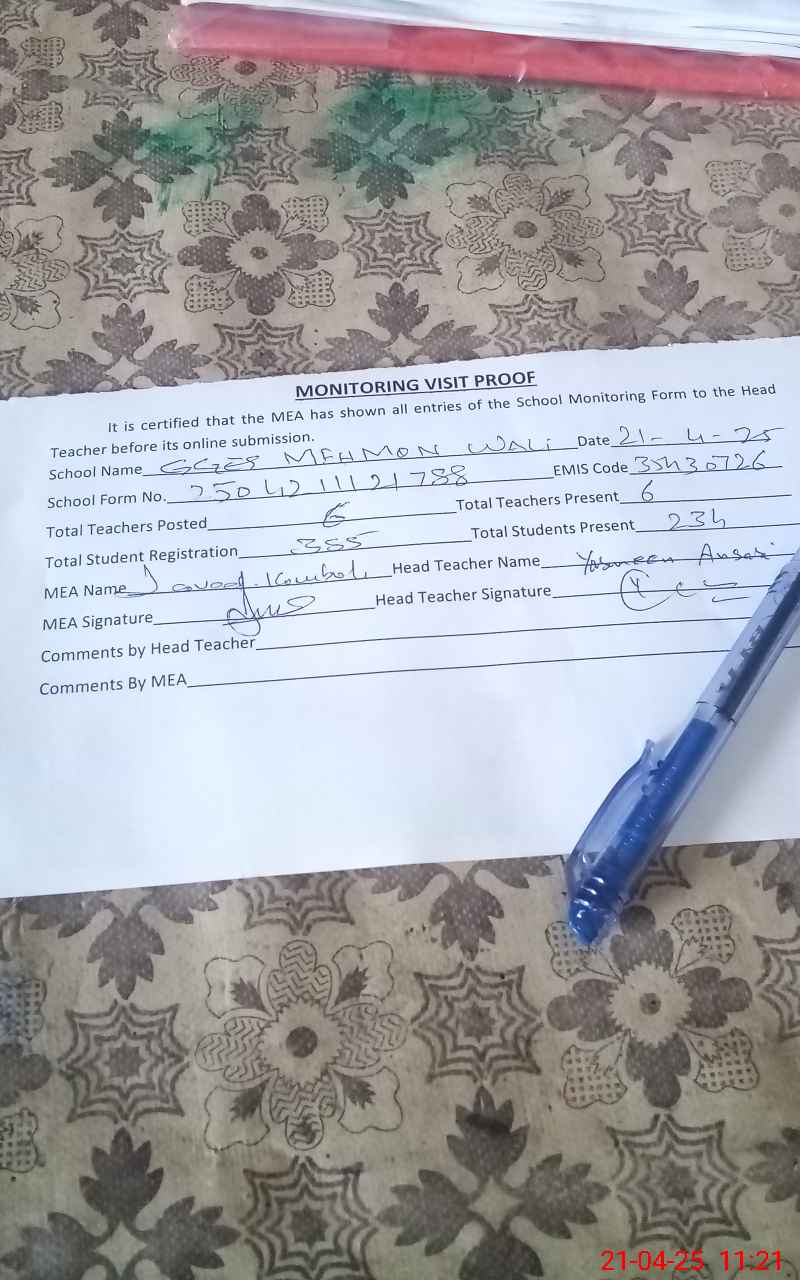 MONITORING VISIT PROOF
It is certified that the MEA has shown all entries of the School Monitoring Form to the Head
Teacher before its online submission.
School Name GGES MEHMON WALI Date 21-4-25
School Form No. 250421121788 EMIS Code 35430726
Total Teachers Posted 6 Total Teachers Present 6
Total Student Registration 355 Total Students Present 234
MEA Name Head Teacher Name Yasmeen Ansari
MEA Signature Head Teacher Signature
Comments by Head Teacher
Comments By MEA
21-04-25 11:21